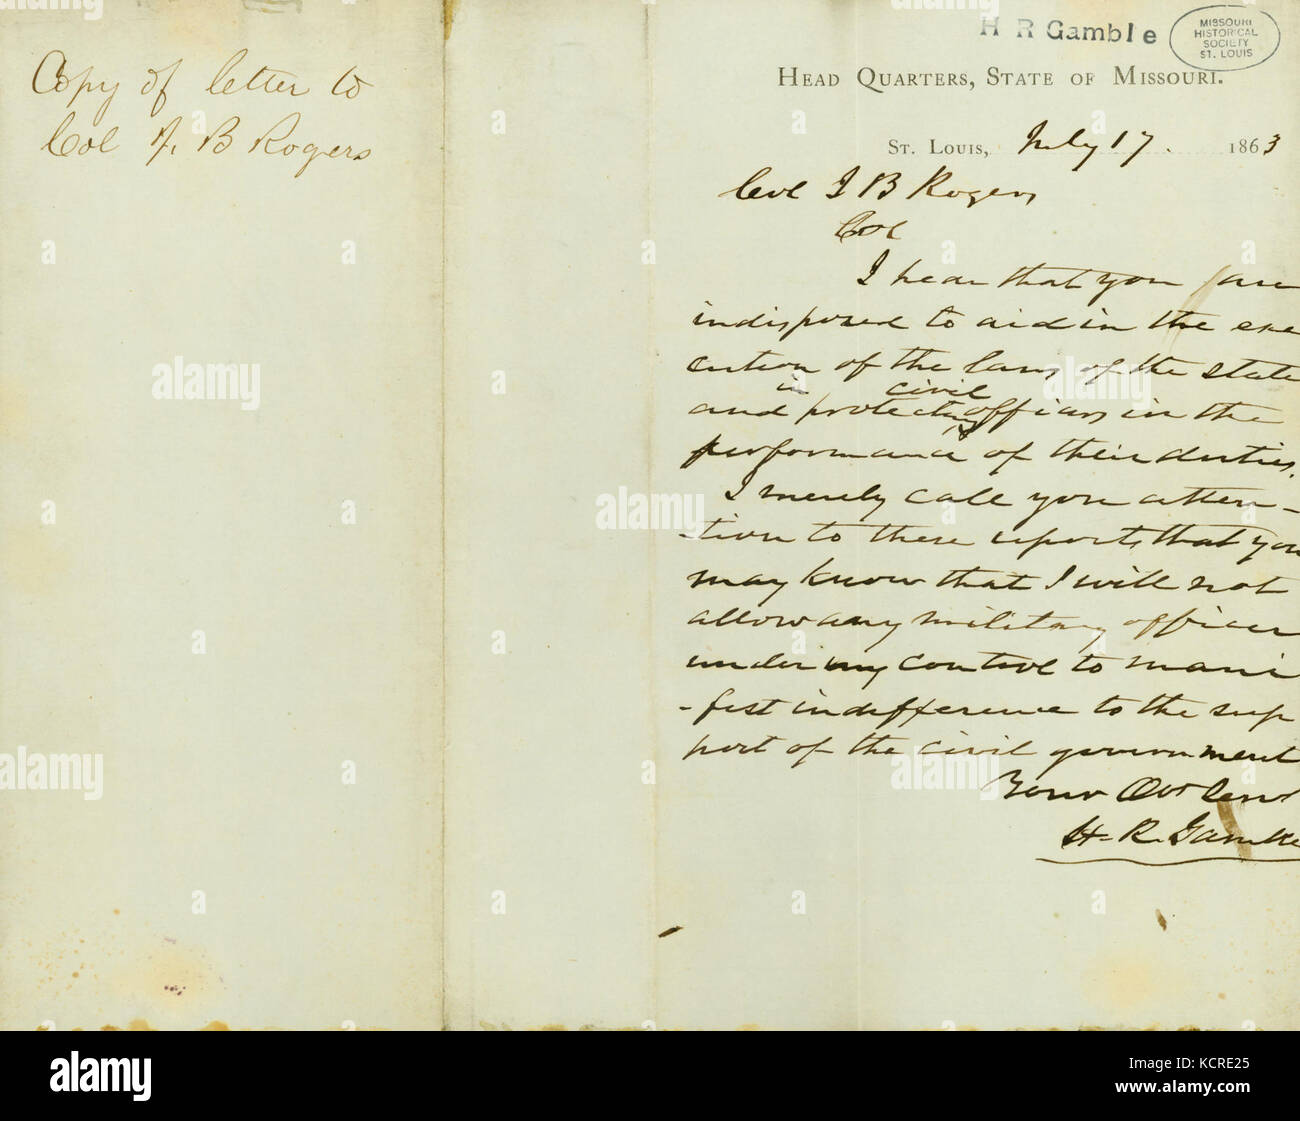 Copy of letter to
Col J. B Rogers
H R Gamble
MISSOURI
HISTORICAL
SOCIETY
ST. LOUIS
HEAD QUARTERS, STATE OF MISSOURI.
ST. LOUIS, July 17. 1863
Col J B Rogers
Col
I hear that you are
indisposed to aid in the exe
cution of the laws of the state
and in protecting civil officers in the
performance of their duties.
I merely call your atten-
-tion to these reports that you
may know that I will not
allow any military officer
under my control to mani
-fest indifference to the sup
port of the civil government
Your Obt Servt
H. R. Gamble
alamy
alamy
Image ID: KCRE25
www.alamy.com